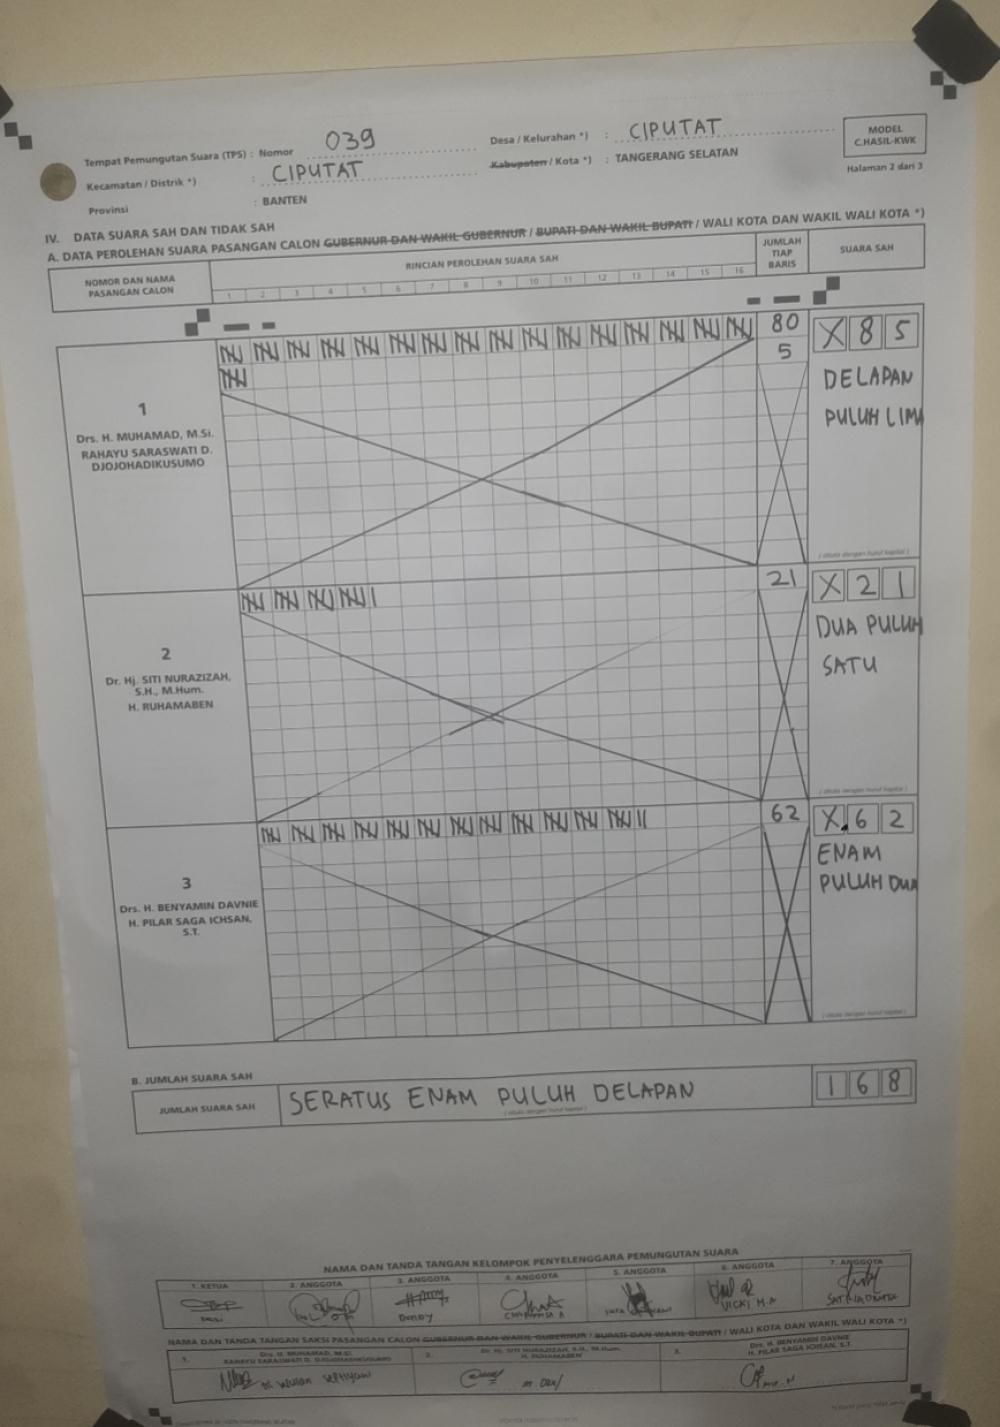 MODEL
C.HASIL-KWK
Halaman 2 dari 3
Tempat Pemungutan Suara (TPS) : Nomor 039
Desa / Kelurahan *) : CIPUTAT
Kecamatan / Distrik *) : CIPUTAT
Kabupaten / Kota *) : TANGERANG SELATAN
Provinsi : BANTEN
IV. DATA SUARA SAH DAN TIDAK SAH
A. DATA PEROLEHAN SUARA PASANGAN CALON GUBERNUR DAN WAKIL GUBERNUR / BUPATI DAN WAKIL BUPATI / WALI KOTA DAN WAKIL WALI KOTA *)
NOMOR DAN NAMA
PASANGAN CALON
RINCIAN PEROLEHAN SUARA SAH
1 2 3 4 5 6 7 8 9 10 11 12 13 14 15 16
JUMLAH
TIAP
BARIS
SUARA SAH
1
Drs. H. MUHAMAD, M.Si.
RAHAYU SARASWATI D.
DJOJOHADIKUSUMO
80
5
X 8 5
DELAPAN
PULUH LIMA
( ditulis dengan huruf kapital )
2
Dr. Hj. SITI NURAZIZAH,
S.H., M.Hum.
H. RUHAMABEN
21
X 2 1
DUA PULUH
SATU
( ditulis dengan huruf kapital )
3
Drs. H. BENYAMIN DAVNIE
H. PILAR SAGA ICHSAN,
S.T.
62
X 6 2
ENAM
PULUH DUA
( ditulis dengan huruf kapital )
B. JUMLAH SUARA SAH
JUMLAH SUARA SAH
SERATUS ENAM PULUH DELAPAN
( ditulis dengan huruf kapital )
1 6 8
NAMA DAN TANDA TANGAN KELOMPOK PENYELENGGARA PEMUNGUTAN SUARA
1. KETUA
2. ANGGOTA
3. ANGGOTA
4. ANGGOTA
5. ANGGOTA
6. ANGGOTA
7. ANGGOTA
DENDY
VICKI M.A
NAMA DAN TANDA TANGAN SAKSI PASANGAN CALON GUBERNUR DAN WAKIL GUBERNUR / BUPATI DAN WAKIL BUPATI / WALI KOTA DAN WAKIL WALI KOTA *)
1.
Drs. H. MUHAMAD, M.Si.
RAHAYU SARASWATI D. DJOJOHADIKUSUMO
2.
Dr. Hj. SITI NURAZIZAH, S.H., M.Hum.
H. RUHAMABEN
3.
Drs. H. BENYAMIN DAVNIE
H. PILAR SAGA ICHSAN, S.T.